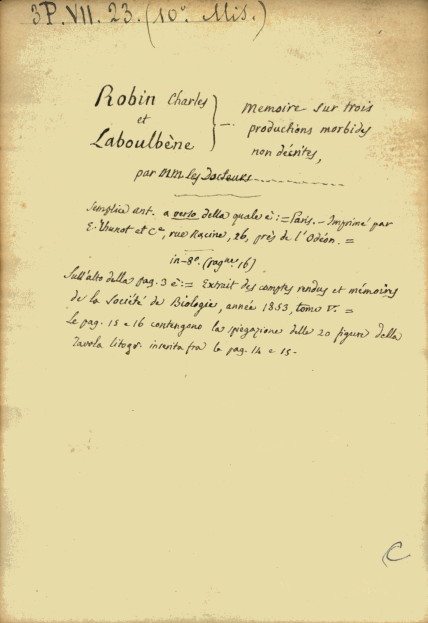 3P. VII. 23. (10° Mis.)
Robin Charles
et
Laboulbène
Memoire sur trois
productions morbides
non décrites,
par MM. les Docteurs
Semplice ant. a verso della quale è: = Paris. - Imprimé par
E. Thunot et Cᵉ, rue Racine, 26, près de l'Odéon. =
in-8°. (pagⁿᵉ 16)
Sull'alto della pag. 3 è: = Extrait des comptes rendus et mémoires
de la Société de Biologie, année 1853, tome V. =
Le pag. 15 e 16 contengono la spiegazione delle 20 figure della
Tavola litogr. inserita fra le pag. 14 e 15-
C